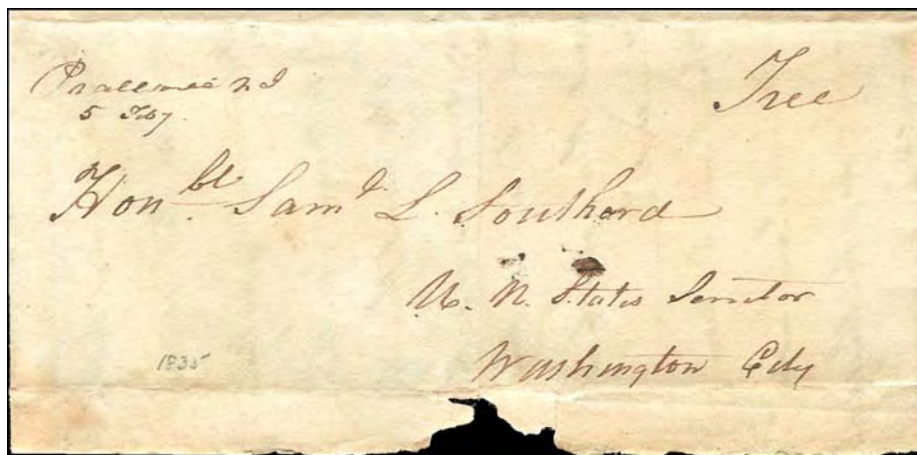 Prallsville N J
5 Feby.
Free
Honbl. Saml. L. Southard
U. N. States Senator
Washington City
1835